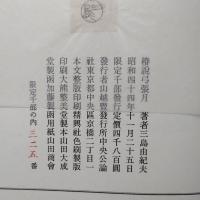 椿説弓張月　著者三島由紀夫
昭和四十四年十一月二十五日
限定千部發行定價四千八百圓
發行者山越豐發行所中央公論
社東京都中央區京橋二丁目一
本文整版印刷精興社色刷製版
印刷大熊整美堂製本山田大成
堂製函加藤製函用紙山田商會
限定千部の内 三二五 番